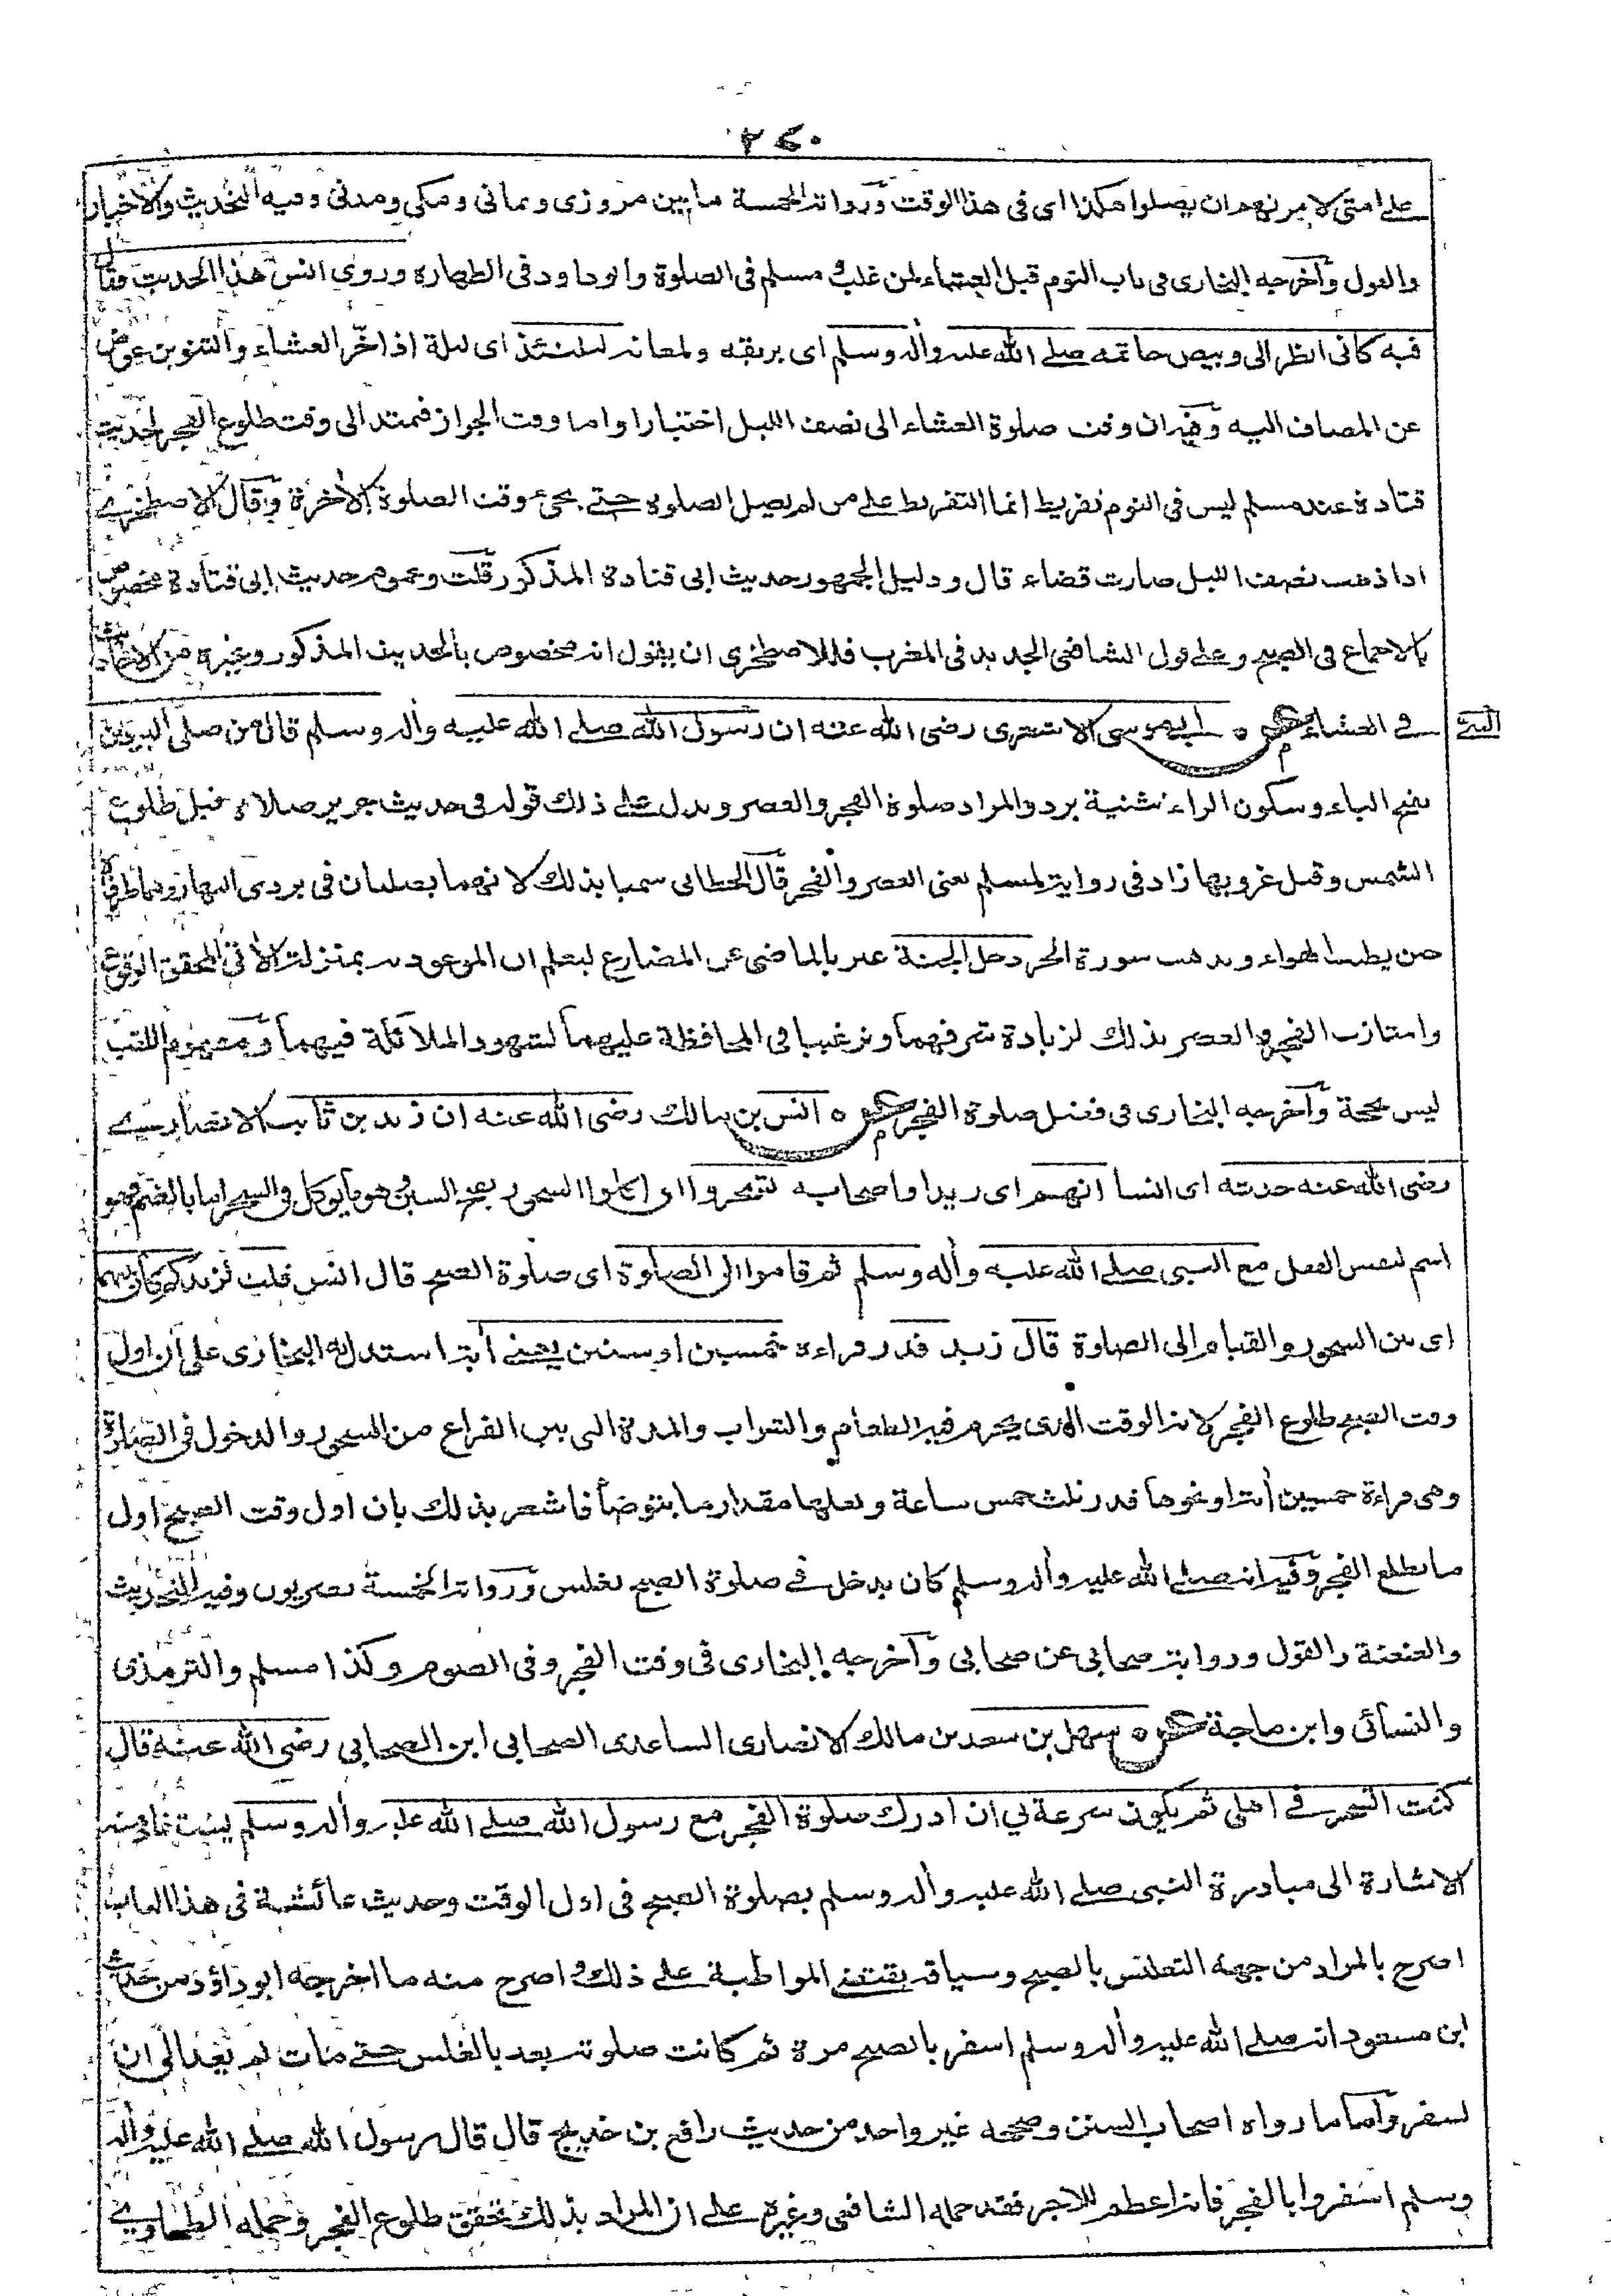 ٢٤٠
على امتى لامرتهم ان يصلوا هكذا اى فى هذا الوقت ورواته الخمسة ما بين مروزى ويمانى ومكى ومدنى وفيه التحديث والاخبار
والقول وآخرجه البخارى فى باب النوم قبل العشاء لمن غلب ومسلم فى الصلوة وابو داود فى الطهارة وروى انس هذا الحديث فقال
فيه كانى انظر الى وبيص خاتمه صلے الله عليه وأله وسلم اى بريقه ولمعانه ليلتئذ اى ليلة اذ اخّر العشاء والتنوين عوض
عن المضاف اليه وفيه ان وقت صلوة العشاء الى نصف الليل اختيارا واما وقت الجواز فيمتد الى وقت طلوع الفجر لحديث
قتادة عند مسلم ليس فى النوم تفريط انما التفريط على من لم يصل الصلوة حتے يجئ وقت الصلوة الأخرة وقال الاصطخرے
اذا ذهب نصف الليل صارت قضاء قال ودليل الجمهور حديث ابى قتادة المذكور قلت وعموم حديث ابى قتادة مخصوص
بالاجماع فى الصبح وعلى قول الشافعى الجديد فى المغرب فللاصطخرى ان يقول انه مخصوص بالحديث المذكور وغيره من الاحاديث
فے العشاء عن ابى موسى الاشعرى رضى الله عنه ان رسول الله صلے الله عليه وأله وسلم قال من صلى البردين
بفتح الباء وسكون الراء تثنية برد والمراد صلوة الفجر والعصر ويدل على ذلك قوله فى حديث جرير صلاة قبل طلوع
الشمس وقبل غروبها زاد فى رواية لمسلم يعنى العصر والفجر قال الخطابى سميا بذلك لانهما يصليان فى بردى النهار وهما طرفاه
حين يطيب الهواء ويذهب سورة الحر دخل الجنة عبر بالماضى عن المضارع ليعلم ان الموعود به بمنزلة الأتى المحقق الوقوع
وامتازت الفجر والعصر بذلك لزيادة شرفهما وترغيبا فى المحافظة عليهما لشهود الملائكة فيهما ومفهوم اللقب
ليس بحجة وآخرجه البخارى فى فضل صلوة الفجر عن انس بن مالك رضى الله عنه ان زيد بن ثابت الانصارے
رضى الله عنه حدثه اى انسا انهم اى زيدا واصحابه تسحروا اى اكلوا السحور بفتح السين وهو ما يوكل فى السحر اما بالضم فهو
اسم لنفس الفعل مع النبى صلے الله عليه وأله وسلم ثم قاموا الى الصلوة اى صلوة الصبح قال انس قلت لزيد كم كان بينهما
اى بين السحور والقيام الى الصلوة قال زيد قدر قراءة خمسين او ستين يعنے أية استدل به البخارى على ان اول
وقت الصبح طلوع الفجر لانه الوقت الذى يحرم فيه الطعام والشراب والمدة التى بين الفراغ من السحور والدخول فى الصلوة
وهى قراءة خمسين أية او نحوها قدر ثلث خمس ساعة ولعلها مقدار ما يتوضأ فاشعر بذلك بان اول وقت الصبح اول
ما يطلع الفجر وفيه انه صلے الله عليه وأله وسلم كان يدخل فے صلوة الصبح بغلس ورواته الخمسة بصريون وفيه التحديث
والعنعنة والقول ورواية صحابى عن صحابى وآخرجه البخارى فى وقت الفجر وفى الصوم وكذا مسلم والترمذى
والنسائى وابن ماجة عن سهل بن سعد بن مالك الانصارى الساعدى الصحابى ابن الصحابى رضى الله عنه قال
كنت اتسحر فے اهلى ثم يكون سرعة بي ان ادرك صلوة الفجر مع رسول الله صلے الله عليه وأله وسلم
الاشارة الى مبادرة النبى صلے الله عليه وأله وسلم بصلوة الصبح فى اول الوقت وحديث عائشة فى هذا الباب
اصرح بالمراد من جهة التغليس بالصبح وسياقه يقتضے المواظبة على ذلك واصرح منه ما اخرجه ابو داؤد من حديث
ابن مسعود انه صلے الله عليه وأله وسلم اسفر بالصبح مرة ثم كانت صلوته بعد بالغلس حتے مات لم يعد الى ان
يسفر وآما ما رواه اصحاب السنن وصححه غير واحد من حديث رافع بن خديج قال قال رسول الله صلے الله عليه وأله
وسلم اسفروا بالفجر فانه اعظم للاجر فقد حمله الشافعى وغيره على ان المراد بذلك تحقق طلوع الفجر وحمله الطحاوے